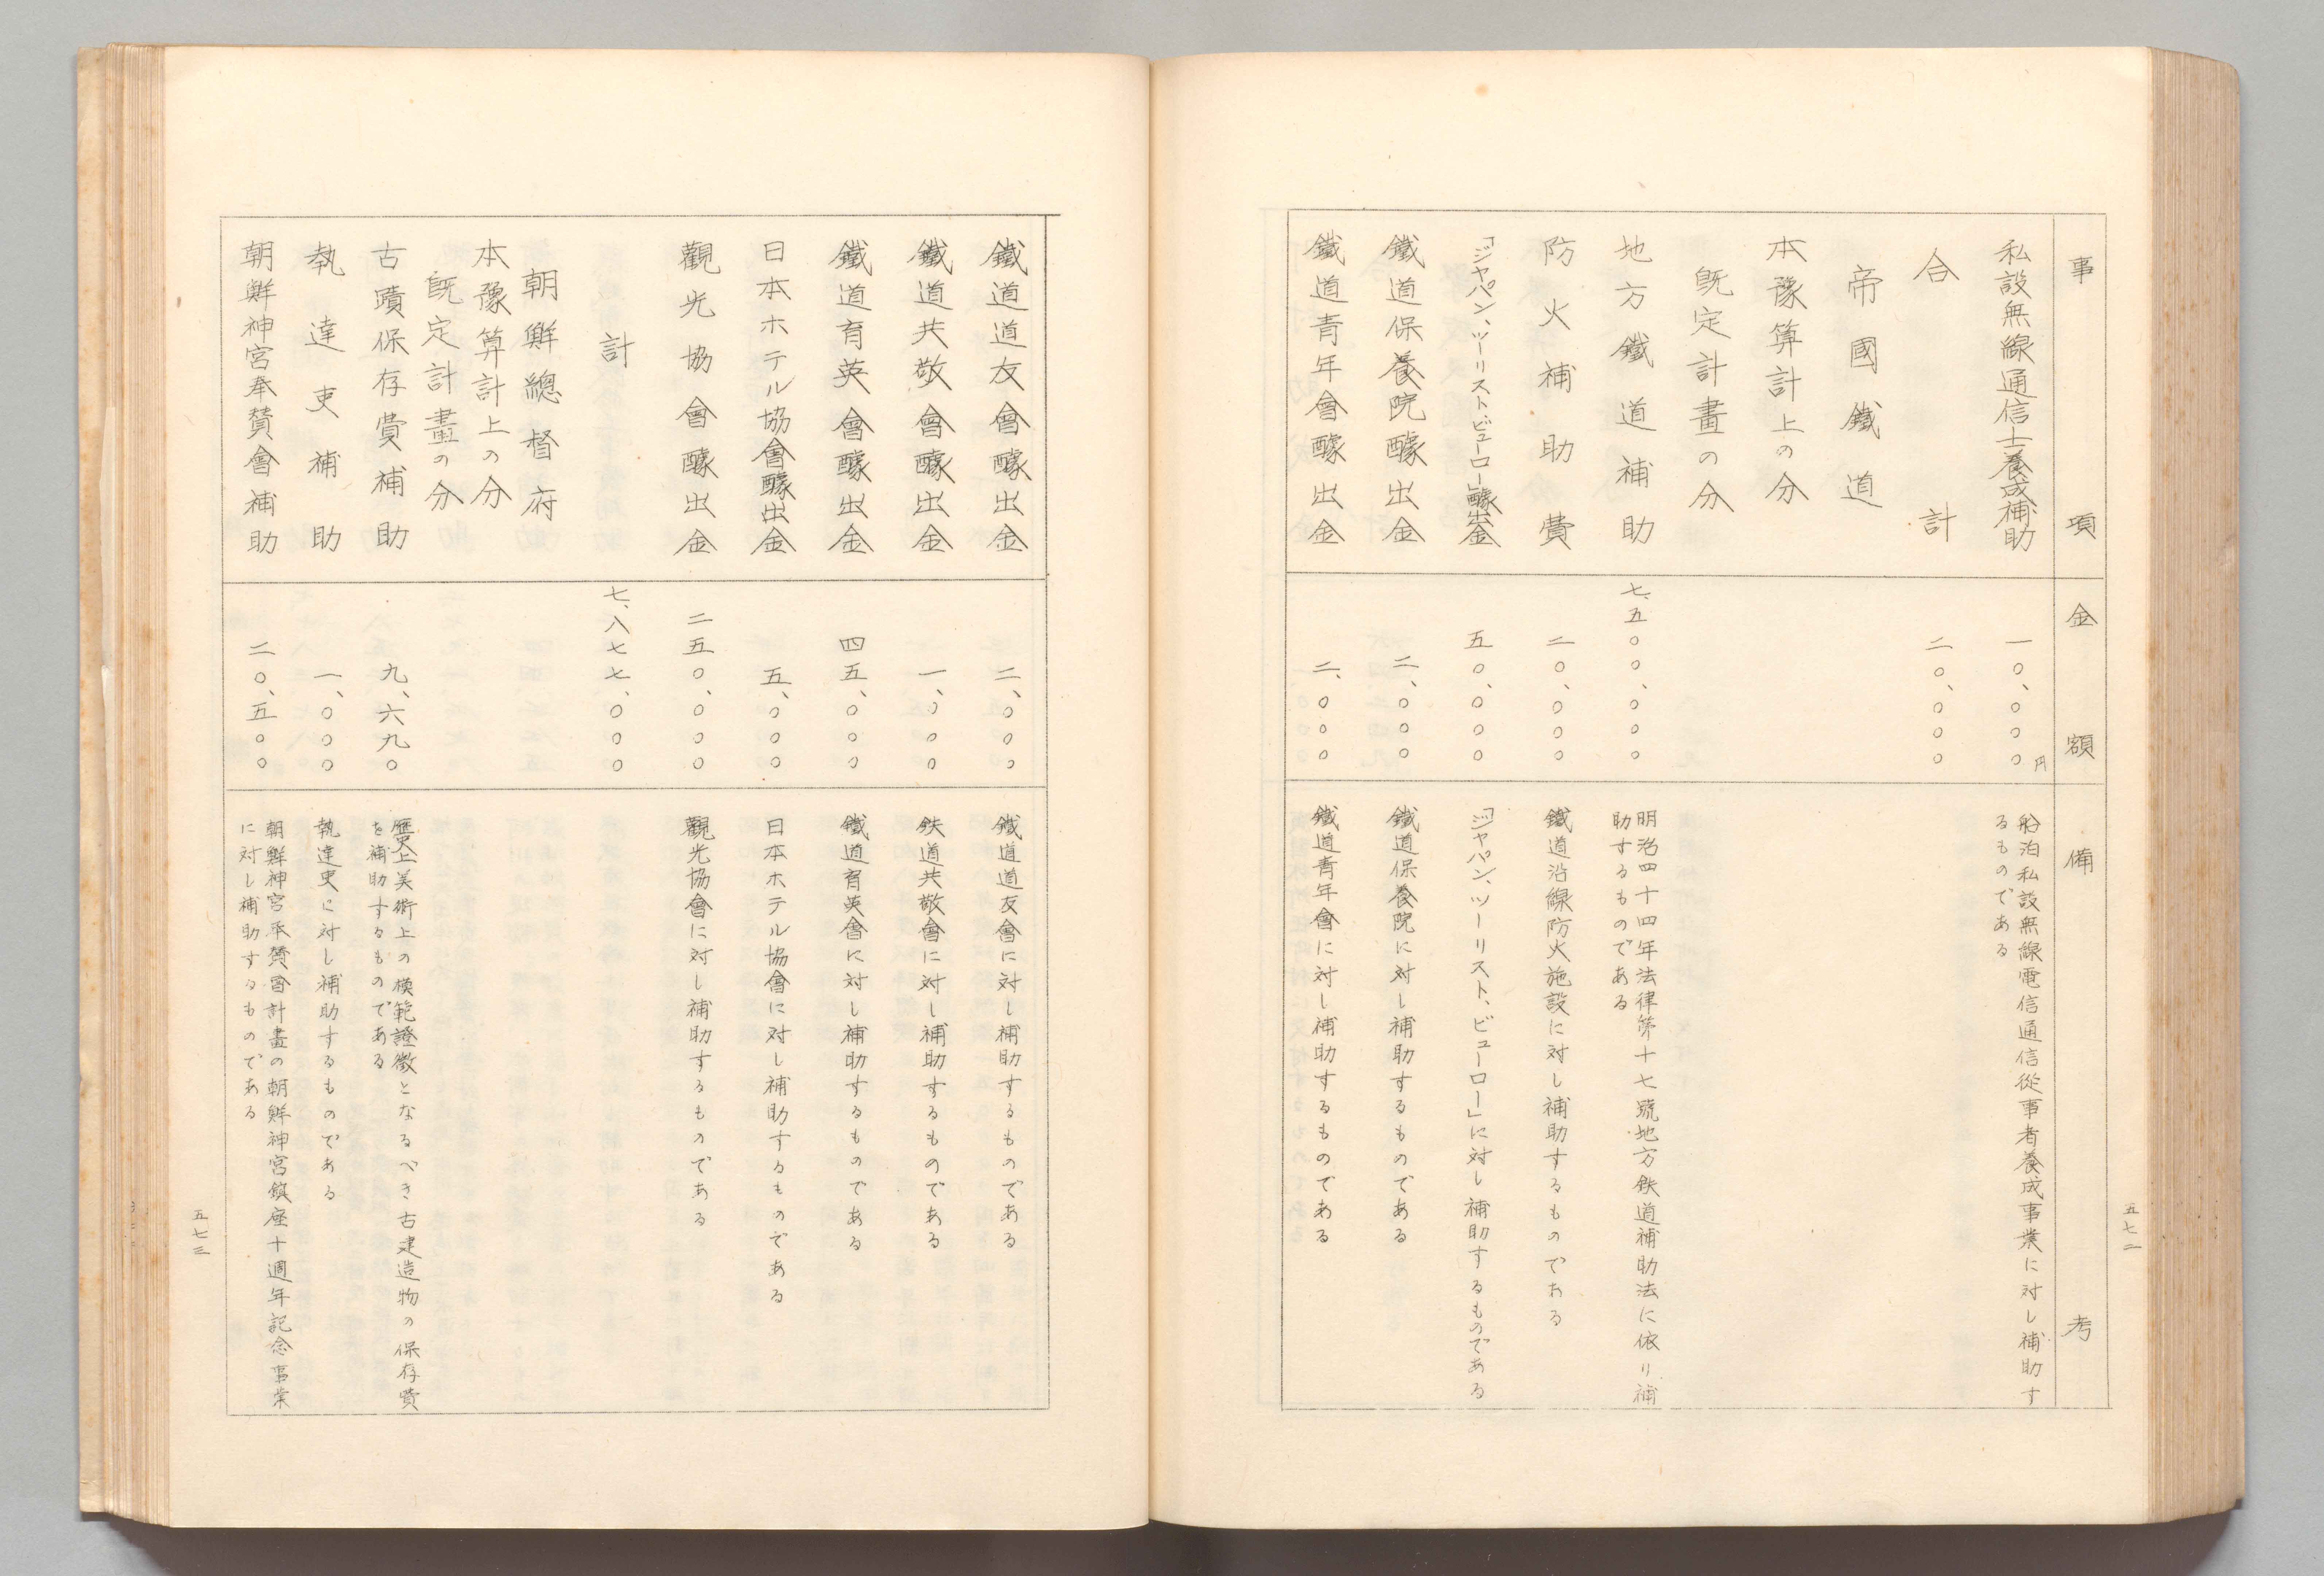 五七二
事項 金額 備考
私設無線通信士養成補助 一〇、〇〇〇円 船泊私設無線電信通信從事者養成事業に対し補助す
るものである
合計 二〇、〇〇〇
帝國鐵道
本豫算計上の分
既定計畫の分
地方鐵道補助 七、五〇〇、〇〇〇 明治四十四年法律第十七號地方鉄道補助法に依り補
助するものである
防火補助費 二〇、〇〇〇 鐵道沿線防火施設に対し補助するものである
「ジャパン、ツーリスト、ビューロー」醵出金 五〇、〇〇〇 「ジャパン、ツーリスト、ビューロー」に対し補助するものである
鐵道保養院醵出金 二、〇〇〇 鐵道保養院に対し補助するものである
鐵道青年會醵出金 二、〇〇〇 鐵道青年會に対し補助するものである
鐵道道友會醵出金 二、〇〇〇 鐵道道友會に対し補助するものである
鐵道共敬會醵出金 一、〇〇〇 鉄道共敬會に対し補助するものである
鐵道育英會醵出金 四五、〇〇〇 鐵道育英會に対し補助するものである
日本ホテル協會醵出金 五、〇〇〇 日本ホテル協會に対し補助するものである
觀光協會醵出金 二五〇、〇〇〇 觀光協會に対し補助するものである
計 七、八七七、〇〇〇
朝鮮總督府
本豫算計上の分
既定計畫の分
古蹟保存費補助 九、六九〇 歷史上美術上の模範證徴となるべき古建造物の保存費
を補助するものである
執達吏補助 一、〇〇〇 執達吏に対し補助するものである
朝鮮神宮奉賛會補助 二〇、五〇〇 朝鮮神宮奉賛會計畫の朝鮮神宮鎮座十週年記念事業
に対し補助するものである
五七三